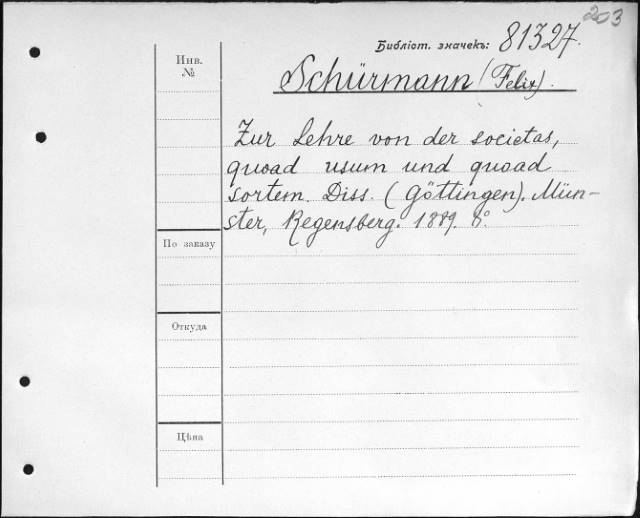 203
Библіот. значекъ: 81327.
Инв.
№
Schürmann (Felix).
Zur Lehre von der societas,
quoad usum und quoad
sortem. Diss. (Göttingen). Mün-
ster, Regensberg. 1889. 8°.
По заказу
Откуда
Цѣна